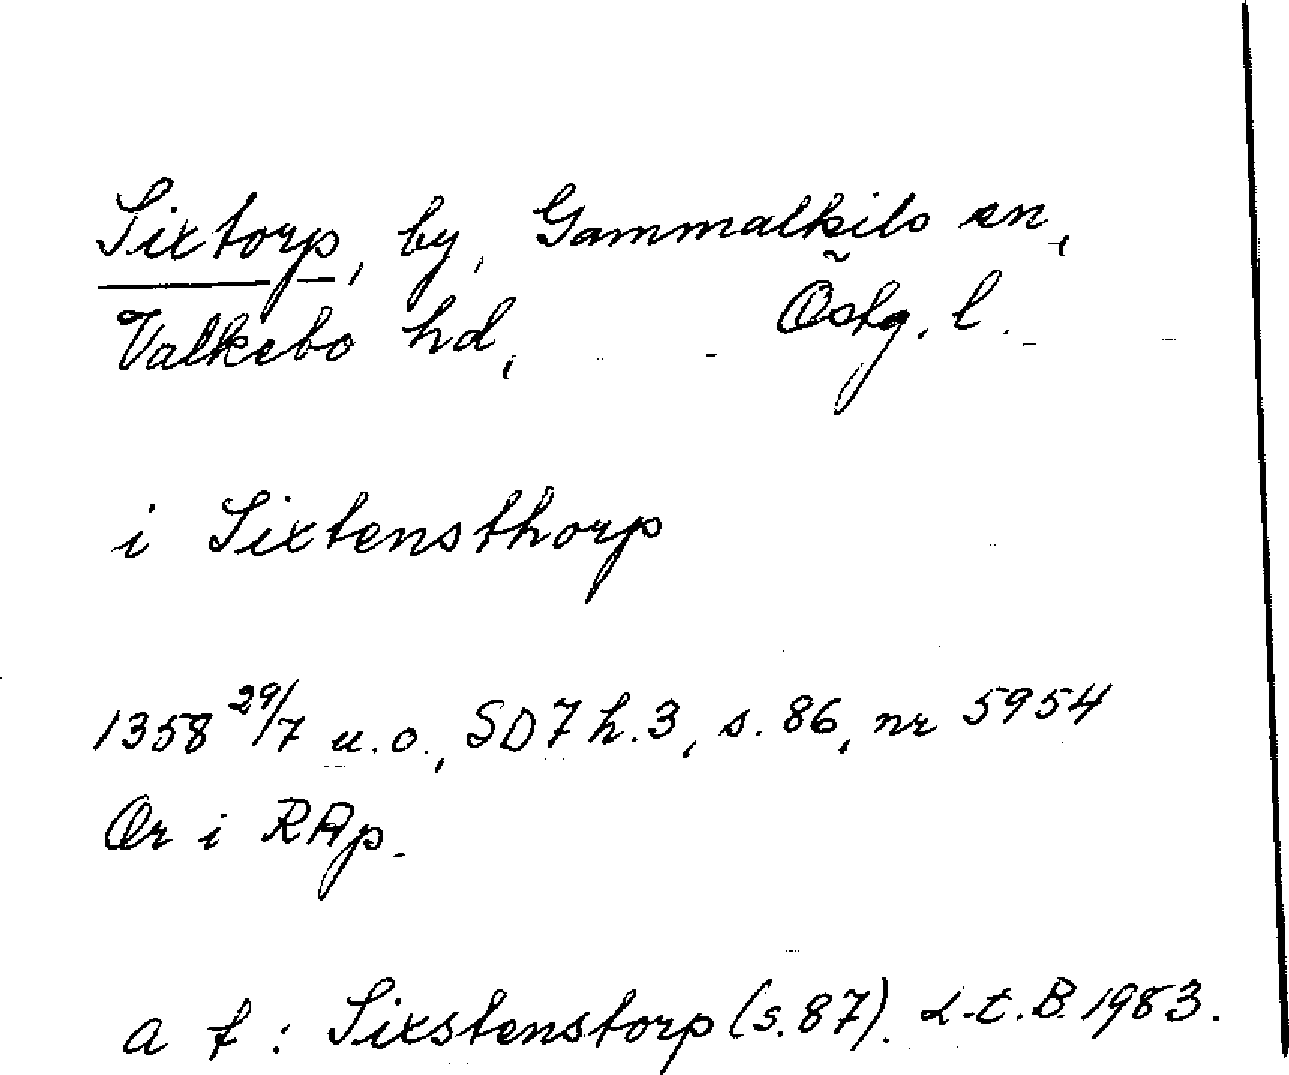 Sixtorp, by, Gammalkils sn,
Valkebo hd, Östg. l.
i Sixtensthorp
1358 29/7 u.o., SD 7 h. 3, s. 86, nr 5954
Or i RAp.
a t: Sixstenstorp (s. 87). L-t. B. 1983.